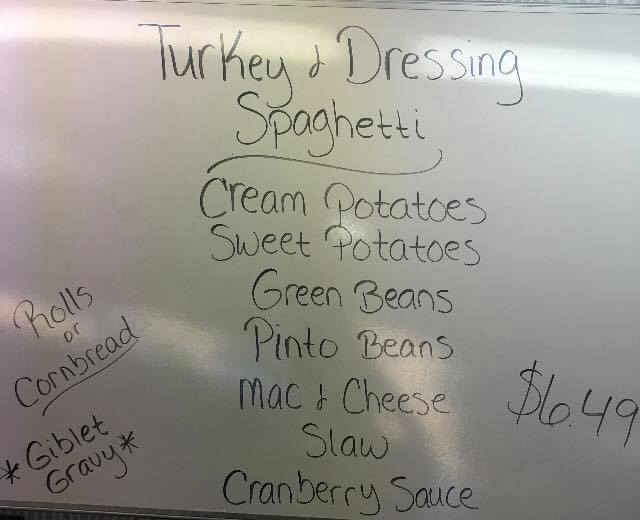 Turkey & Dressing
Spaghetti
Cream Potatoes
Sweet Potatoes
Green Beans
Pinto Beans
Mac & Cheese
Slaw
Cranberry Sauce
Rolls
or
Cornbread
*Giblet
Gravy*
$6.49